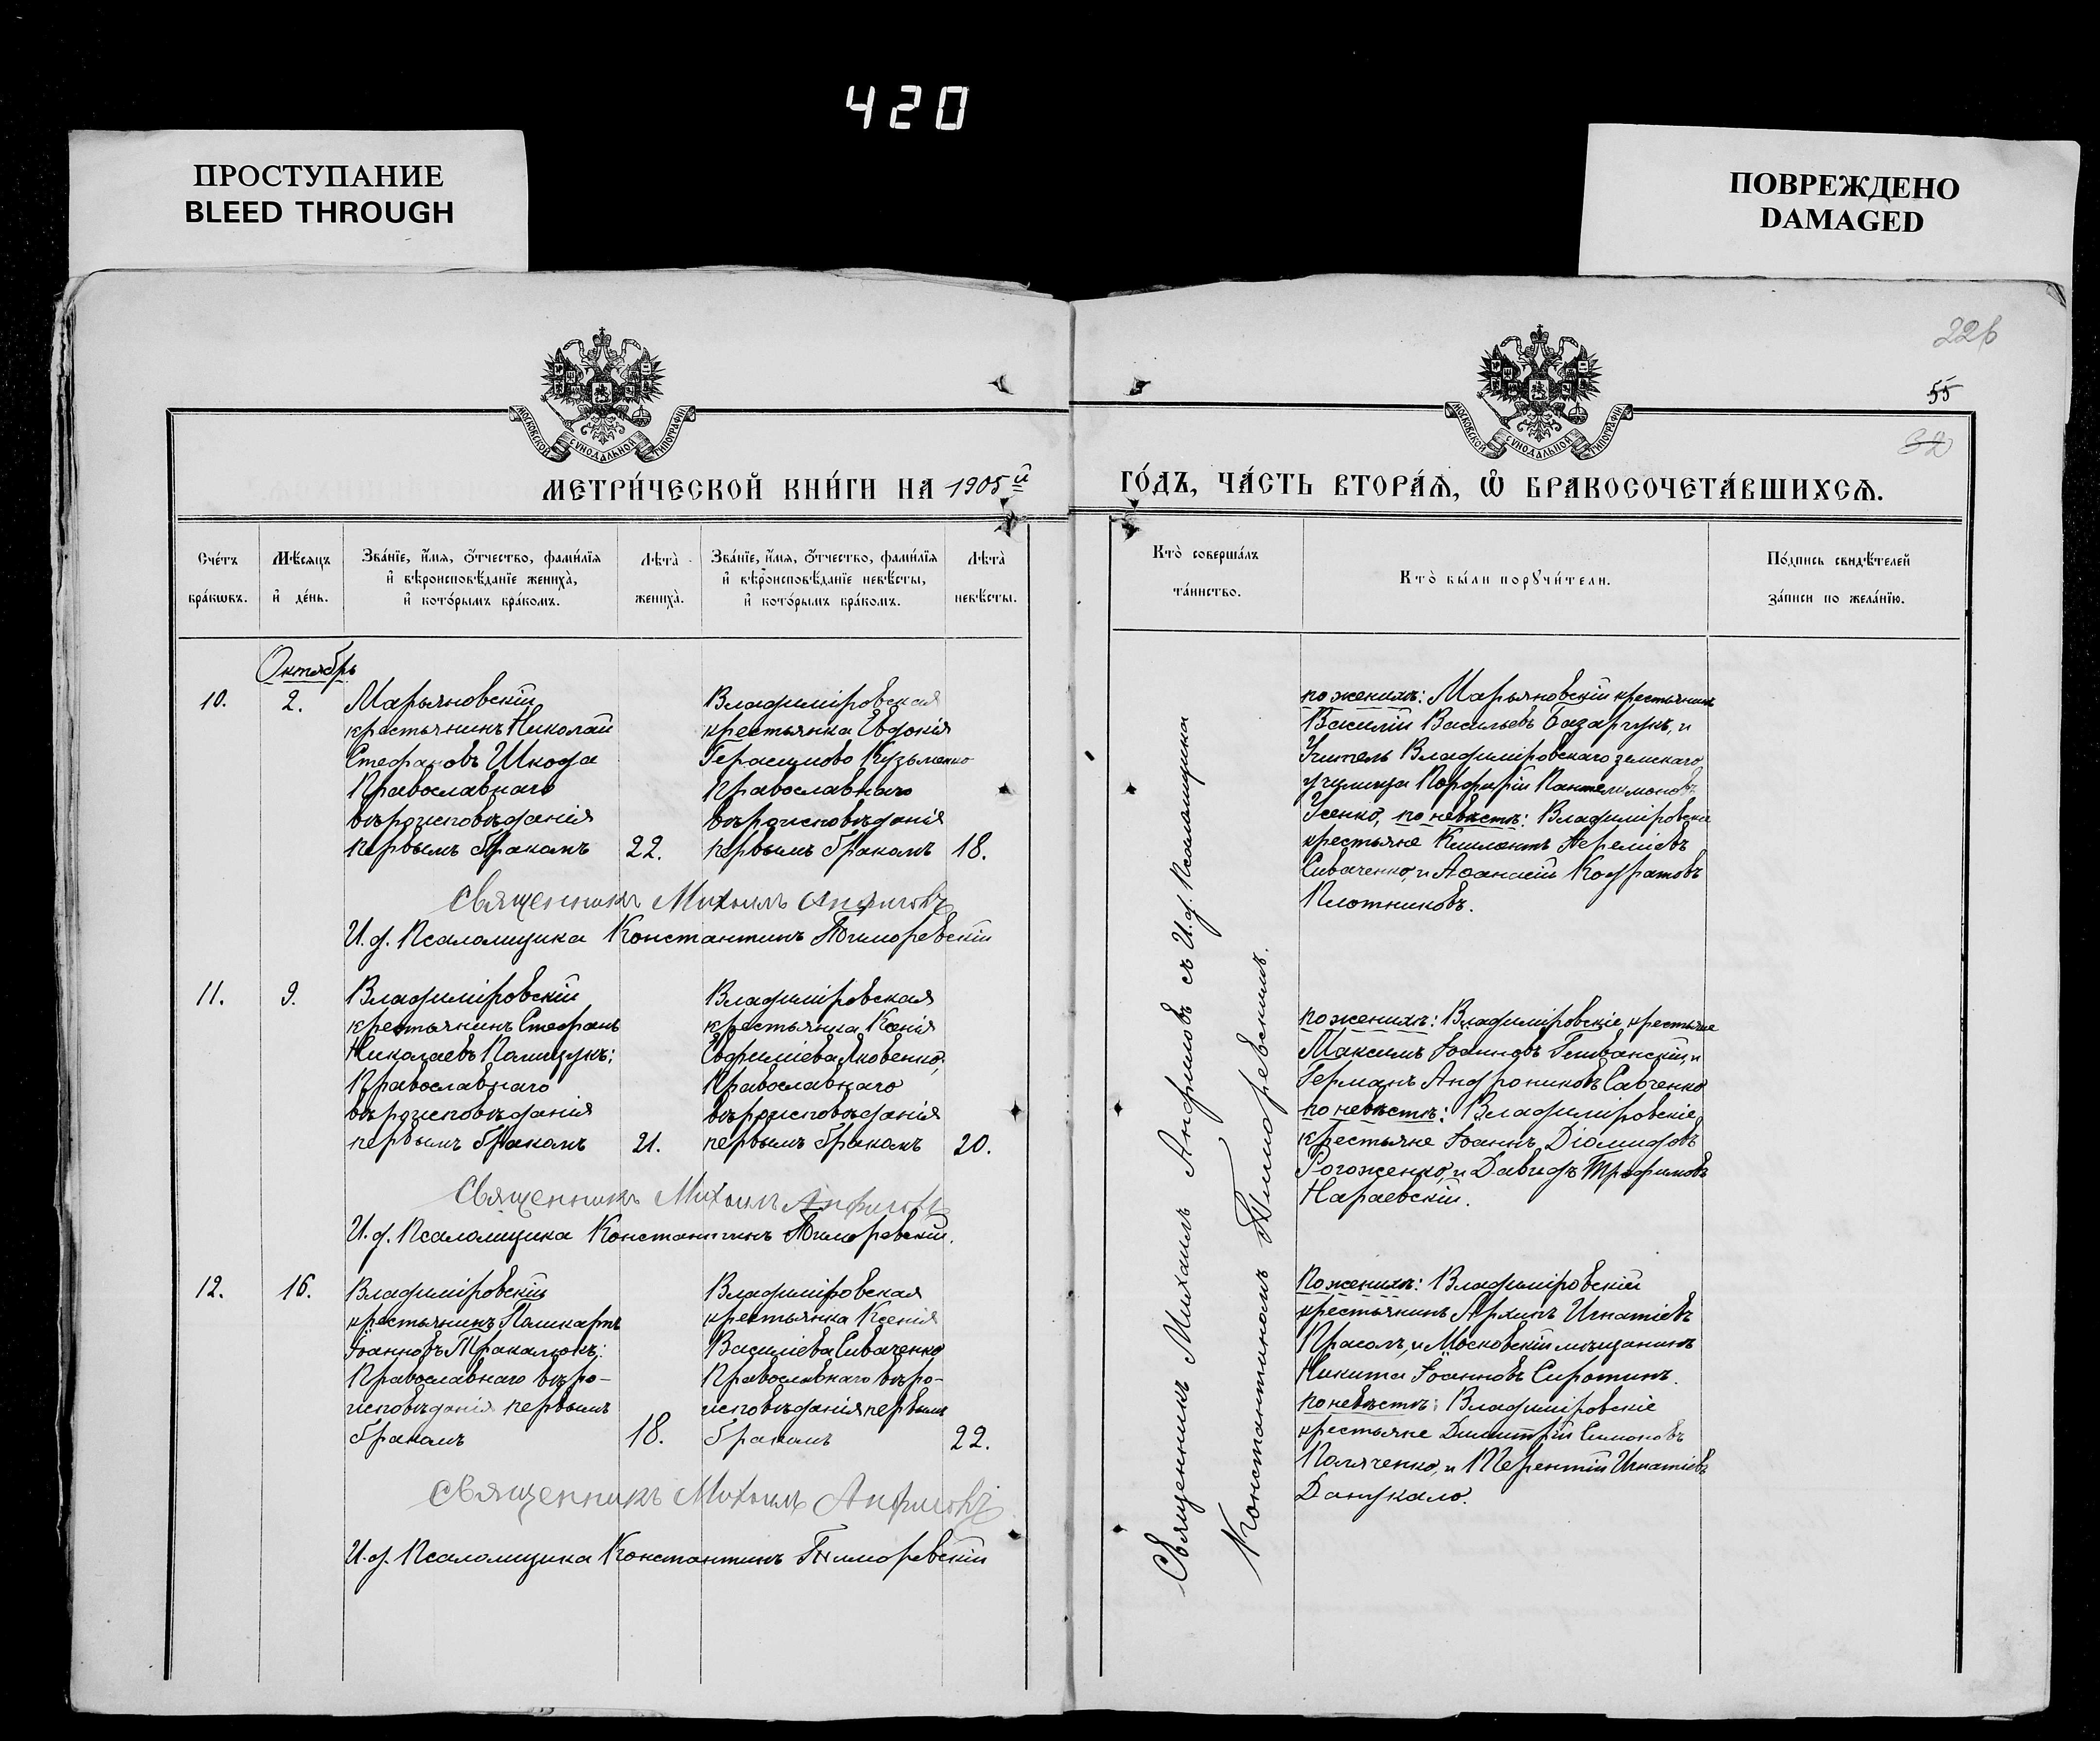 420
ПРОСТУПАНИЕ
BLEED THROUGH
ПОВРЕЖДЕНО
DAMAGED
226
55
32
МОСКОВСКОЙ СѴНОДАЛЬНОЙ ТИПОГРАФІИ
МОСКОВСКОЙ СѴНОДАЛЬНОЙ ТИПОГРАФІИ
МЕТРИ́ЧЕСКОЙ КНИ́ГИ НА 1905 й
ГО́ДЪ, ЧА́СТЬ ВТОРА́Ѧ, Ѽ БРАКОСОЧЕТА́ВШИХСѦ.
Сче́тъ бра́кѡвъ.
Мѣ́сѧцъ и҆ де́нь.
Зва́нїе, и҆́мѧ, ѻ҆́тчество, фами́лїѧ
и҆ вѣроисповѣ́данїе жениха̀,
и҆ кото́рымъ бра́комъ.
Лѣта̀ жениха̀.
Зва́нїе, и҆́мѧ, ѻ҆́тчество, фами́лїѧ
и҆ вѣроисповѣ́данїе невѣ́сты,
и҆ кото́рымъ бра́комъ.
Лѣта̀ невѣ́сты.
Кто̀ соверша́лъ та́инство.
Кто̀ бы́ли порꙋчи́тели.
По́дпись свидѣ́телей
за́писи по жела́нїю.
Октябрь
10.
2.
Марьяновскій
крестьянинъ Николай
Стефановъ Шкода
Православнаго
вѣроисповѣданія
первымъ бракомъ
22.
Владиміровская
крестьянка Евдокія
Герасимова Кузьменко
Православнаго
вѣроисповѣданія
первымъ бракомъ
18.
Священникъ Михаилъ Анфимовъ
И. д. Псаломщика Константинъ Тиморевскій
11.
9.
Владиміровскій
крестьянинъ Стефанъ
Николаевъ Полищукъ:
Православнаго
вѣроисповѣданія
первымъ бракомъ
21.
Владиміровская
крестьянка Ксенія
Евфиміева Яковенко;
Православнаго
вѣроисповѣданія
первымъ бракомъ
20.
Священникъ Михаилъ Анфимовъ
И. д. Псаломщика Константинъ Тиморевскій.
12.
16.
Владиміровскій
крестьянинъ Поликарпъ
Іоанновъ Тракалюкъ:
Православнаго вѣро-
исповѣданія первымъ
бракомъ
18.
Владиміровская
крестьянка Ксенія
Василіева Сиваченко
Православнаго вѣро-
исповѣданія первымъ
бракомъ
22.
Священникъ Михаилъ Анфимовъ
И. д. Псаломщика Константинъ Тиморевскій
Священникъ Михаилъ Анфимовъ съ И. д. Псаломщика
Константиномъ Тиморевскимъ.
по женихѣ: Марьяновскій крестьянинъ
Василій Васильевъ Базарчукъ, и
Учитель Владиміровскаго земскаго
училища Порфирій Пантелимоновъ
Усенко, по невѣстѣ: Владиміровскіе
крестьяне Климентъ Іереміевъ
Сиваченко, и Аѳанасій Кодратовъ
Плотниковъ.
по женихѣ: Владиміровскіе крестьяне
Максимъ Іоанновъ Гетванскій, и
Германъ Андрониковъ Савченко
по невѣстѣ: Владиміровскіе
крестьяне Іоаннъ Діомидовъ
Рогоженко, и Давидъ Трофимовъ
Нараевскій.
По женихѣ: Владиміровскій
крестьянинъ Архипъ Игнатіевъ
Прасолъ, и Московскій мѣщанинъ
Никита Іоанновъ Сиротинъ.
по невѣстѣ: Владиміровскіе
крестьяне Димитрій Симоновъ
Поляченко, и Терентій Игнатіевъ
Данукало.